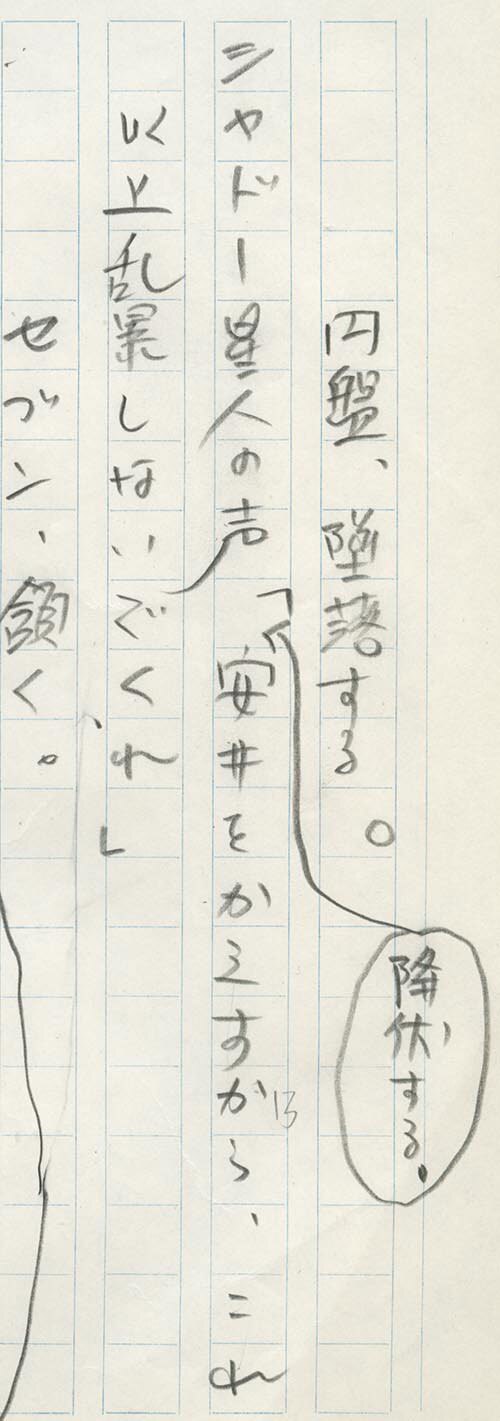 円盤、墜落する。
降伏する。
シャドー星人の声「安井をかえすから、これ
以上乱暴しないでくれ」
セブン、頷く。